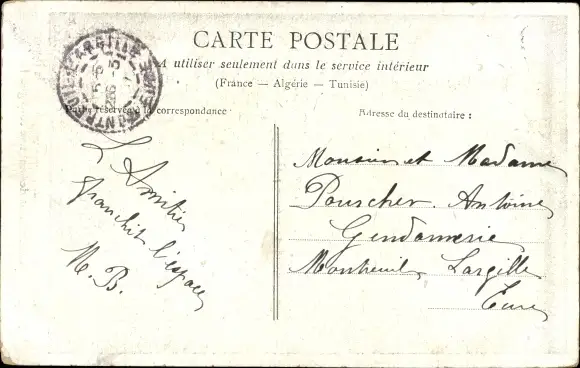 CARTE POSTALE
A utiliser seulement dans le service intérieur
(France — Algérie — Tunisie)
Partie réservée à la correspondance
Adresse du destinataire :
L'Amitié
franchit l'espace
M. B.
Monsieur et Madame
Pourcher Antoine
Gendarmerie
Montreuil Largille
Eure